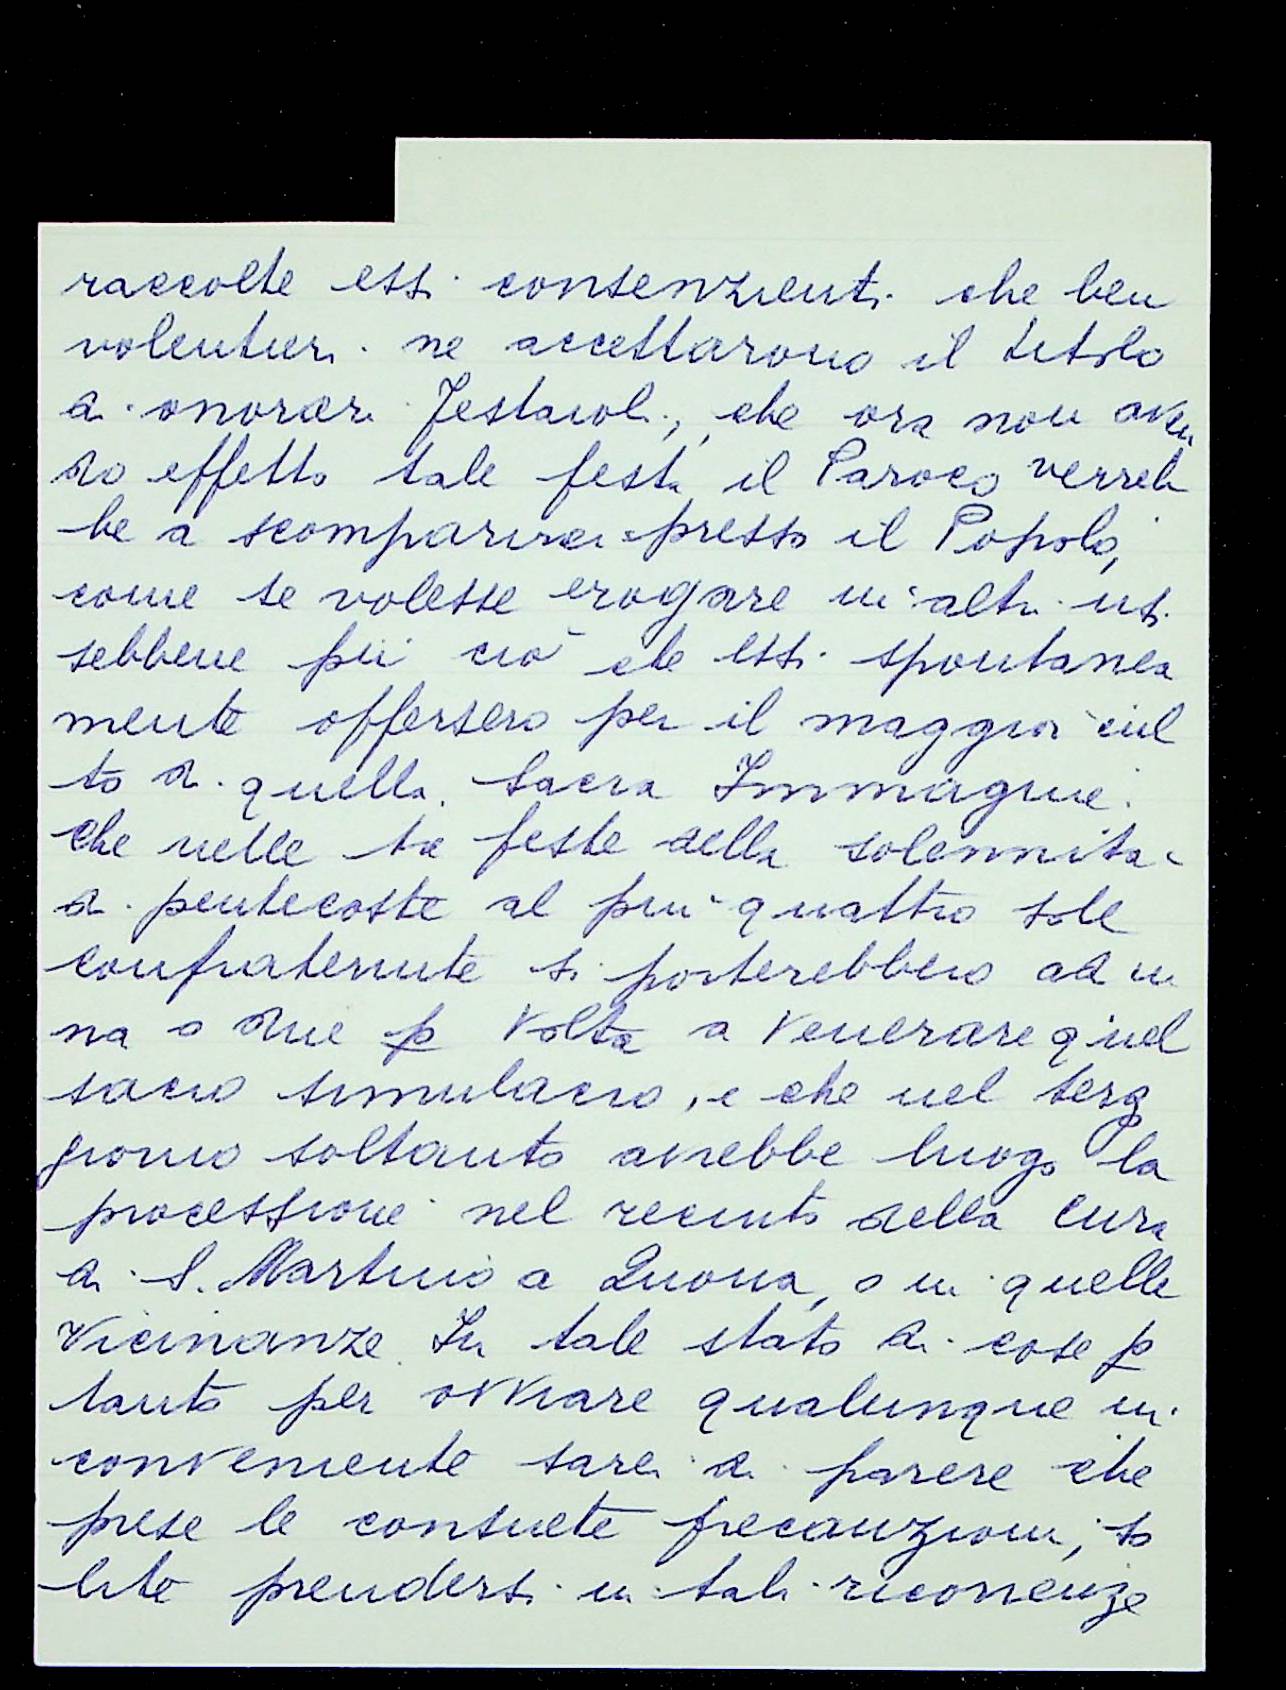 raccolte essi consenzienti che ben
volentieri ne accettarono il titolo
di onorari Festaioli, che ora non aven
do effetto tale festa il Paroco verreb
be a scomparire presso il Popolo,
come se volesse erogare in altri usi
sebbene pii ciò che essi spontanea
mente offersero per il maggior cul
to di quella Sacra Immagine.
Che nelle tre feste della solennità
di pentecoste al più quattro sole
confraternite si porterebbero ad u
na o due p volta a venerare quel
sacro simulacro, e che nel terzo
giorno soltanto avrebbe luogo la
processione nel recinto della Cura
di S. Martino a Quona, o in quelle
vicinanze. In tale stato di cose p
tanto per ovviare qualunque in
conveniente sarei di parere che
prese le consuete precauzioni, so
lite prendersi in tali ricorrenze